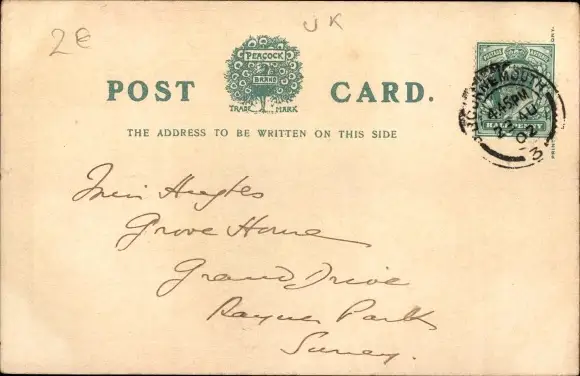 2€
UK
POST CARD.
PEACOCK
BRAND
TRADE MARK
THE ADDRESS TO BE WRITTEN ON THIS SIDE
BOURNEMOUTH
4.45PM
23 AU
02
3
HALFPENNY
Miss Hughes
Grove House
Grand Drive
Raynes Park
Surrey.